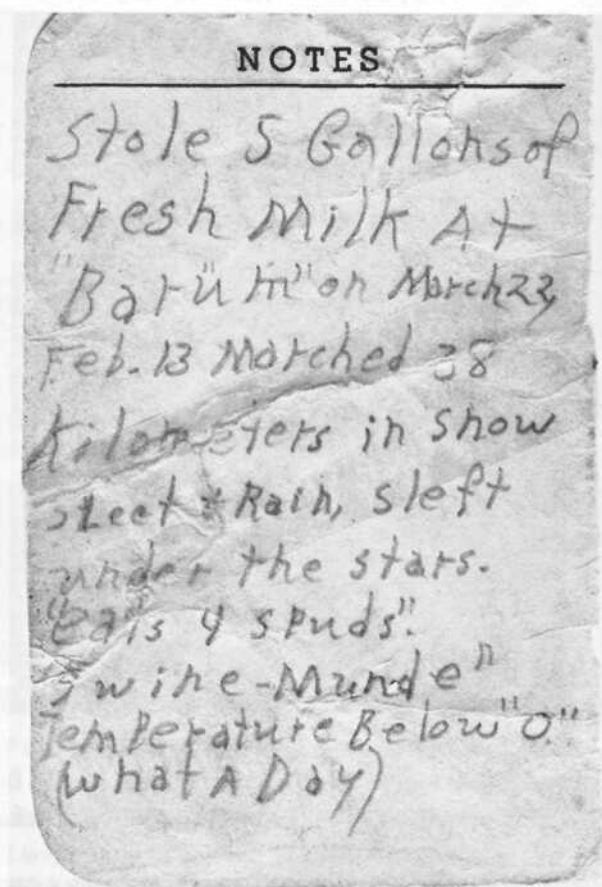 NOTES
Stole 5 Gallons of
Fresh Milk At
"Barüm" on March 23,
Feb. 13 Marched 38
Kilometers in Snow
Sleet & Rain, sleft
under the stars.
"eats 4 spuds".
Swine-Munde"
Temperature Below "0."
(What A Day)